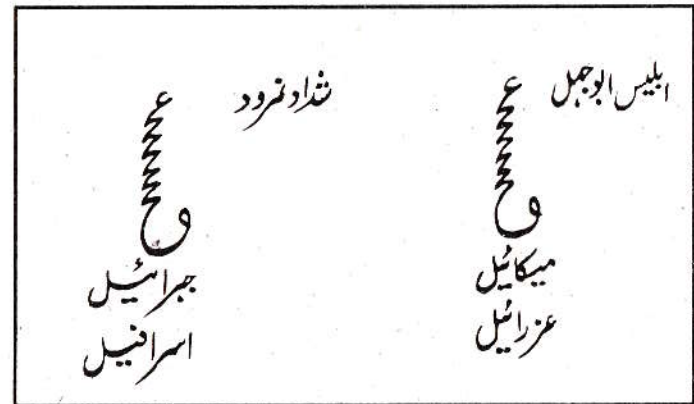 ابلیس ابوجہل
میکائیل
عزرائیل
شداد نمرود
جبرائیل
اسرافیل